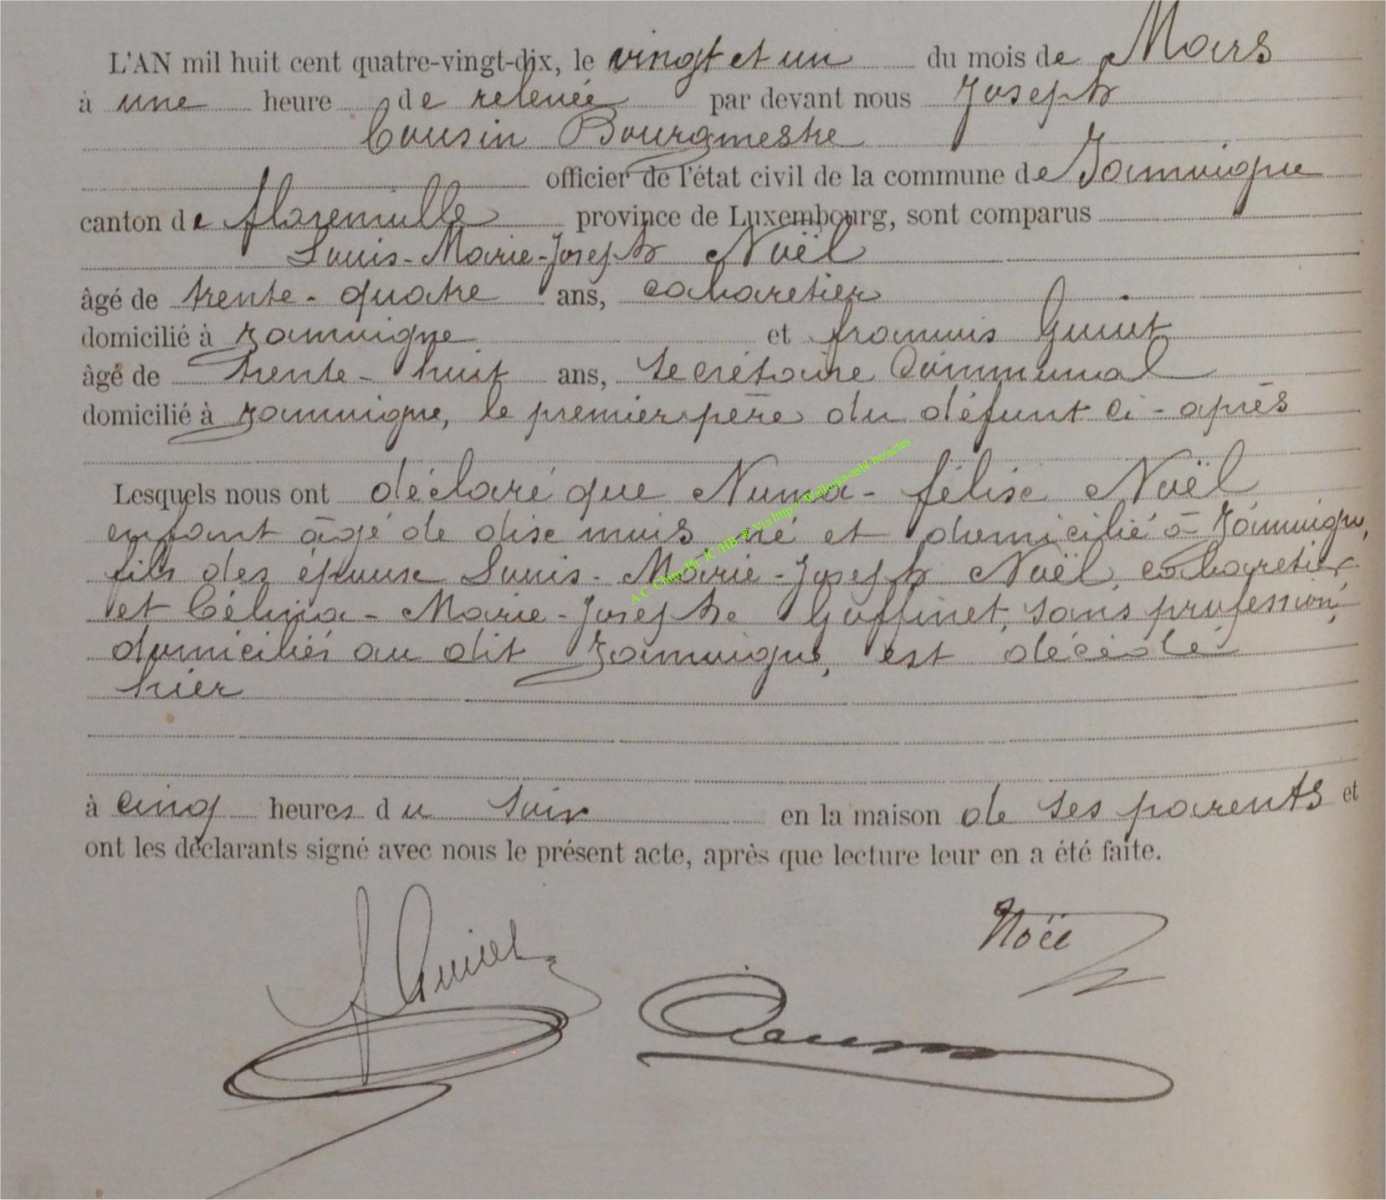 L'AN mil huit cent quatre-vingt-dix, le vingt et un du mois de Mars
à une heure de relevée par devant nous Joseph
Cousin Bourgmestre
officier de l'état civil de la commune de Jamoigne
canton de florenville province de Luxembourg, sont comparus
Louis-Marie-Joseph Noël
âgé de trente-quatre ans, cabaretier
domicilié à Jamoigne et françois
âgé de trente-huit ans, secrétaire Communal
domicilié à Jamoigne, le premier père du défunt ci-après
Lesquels nous ont déclaré que Numa-félix Noël
enfant âgé de dix mois né et domicilié à Jamoigne,
fils des époux Louis-Marie-Joseph Noël, cabaretier
et Célina-Marie-Josephe Goffinet, sans profession,
domiciliés au dit Jamoigne, est décédé
hier
à cinq heures du soir en la maison de ses parents et
ont les déclarants signé avec nous le présent acte, après que lecture leur en a été faite.
Noël
Cousin